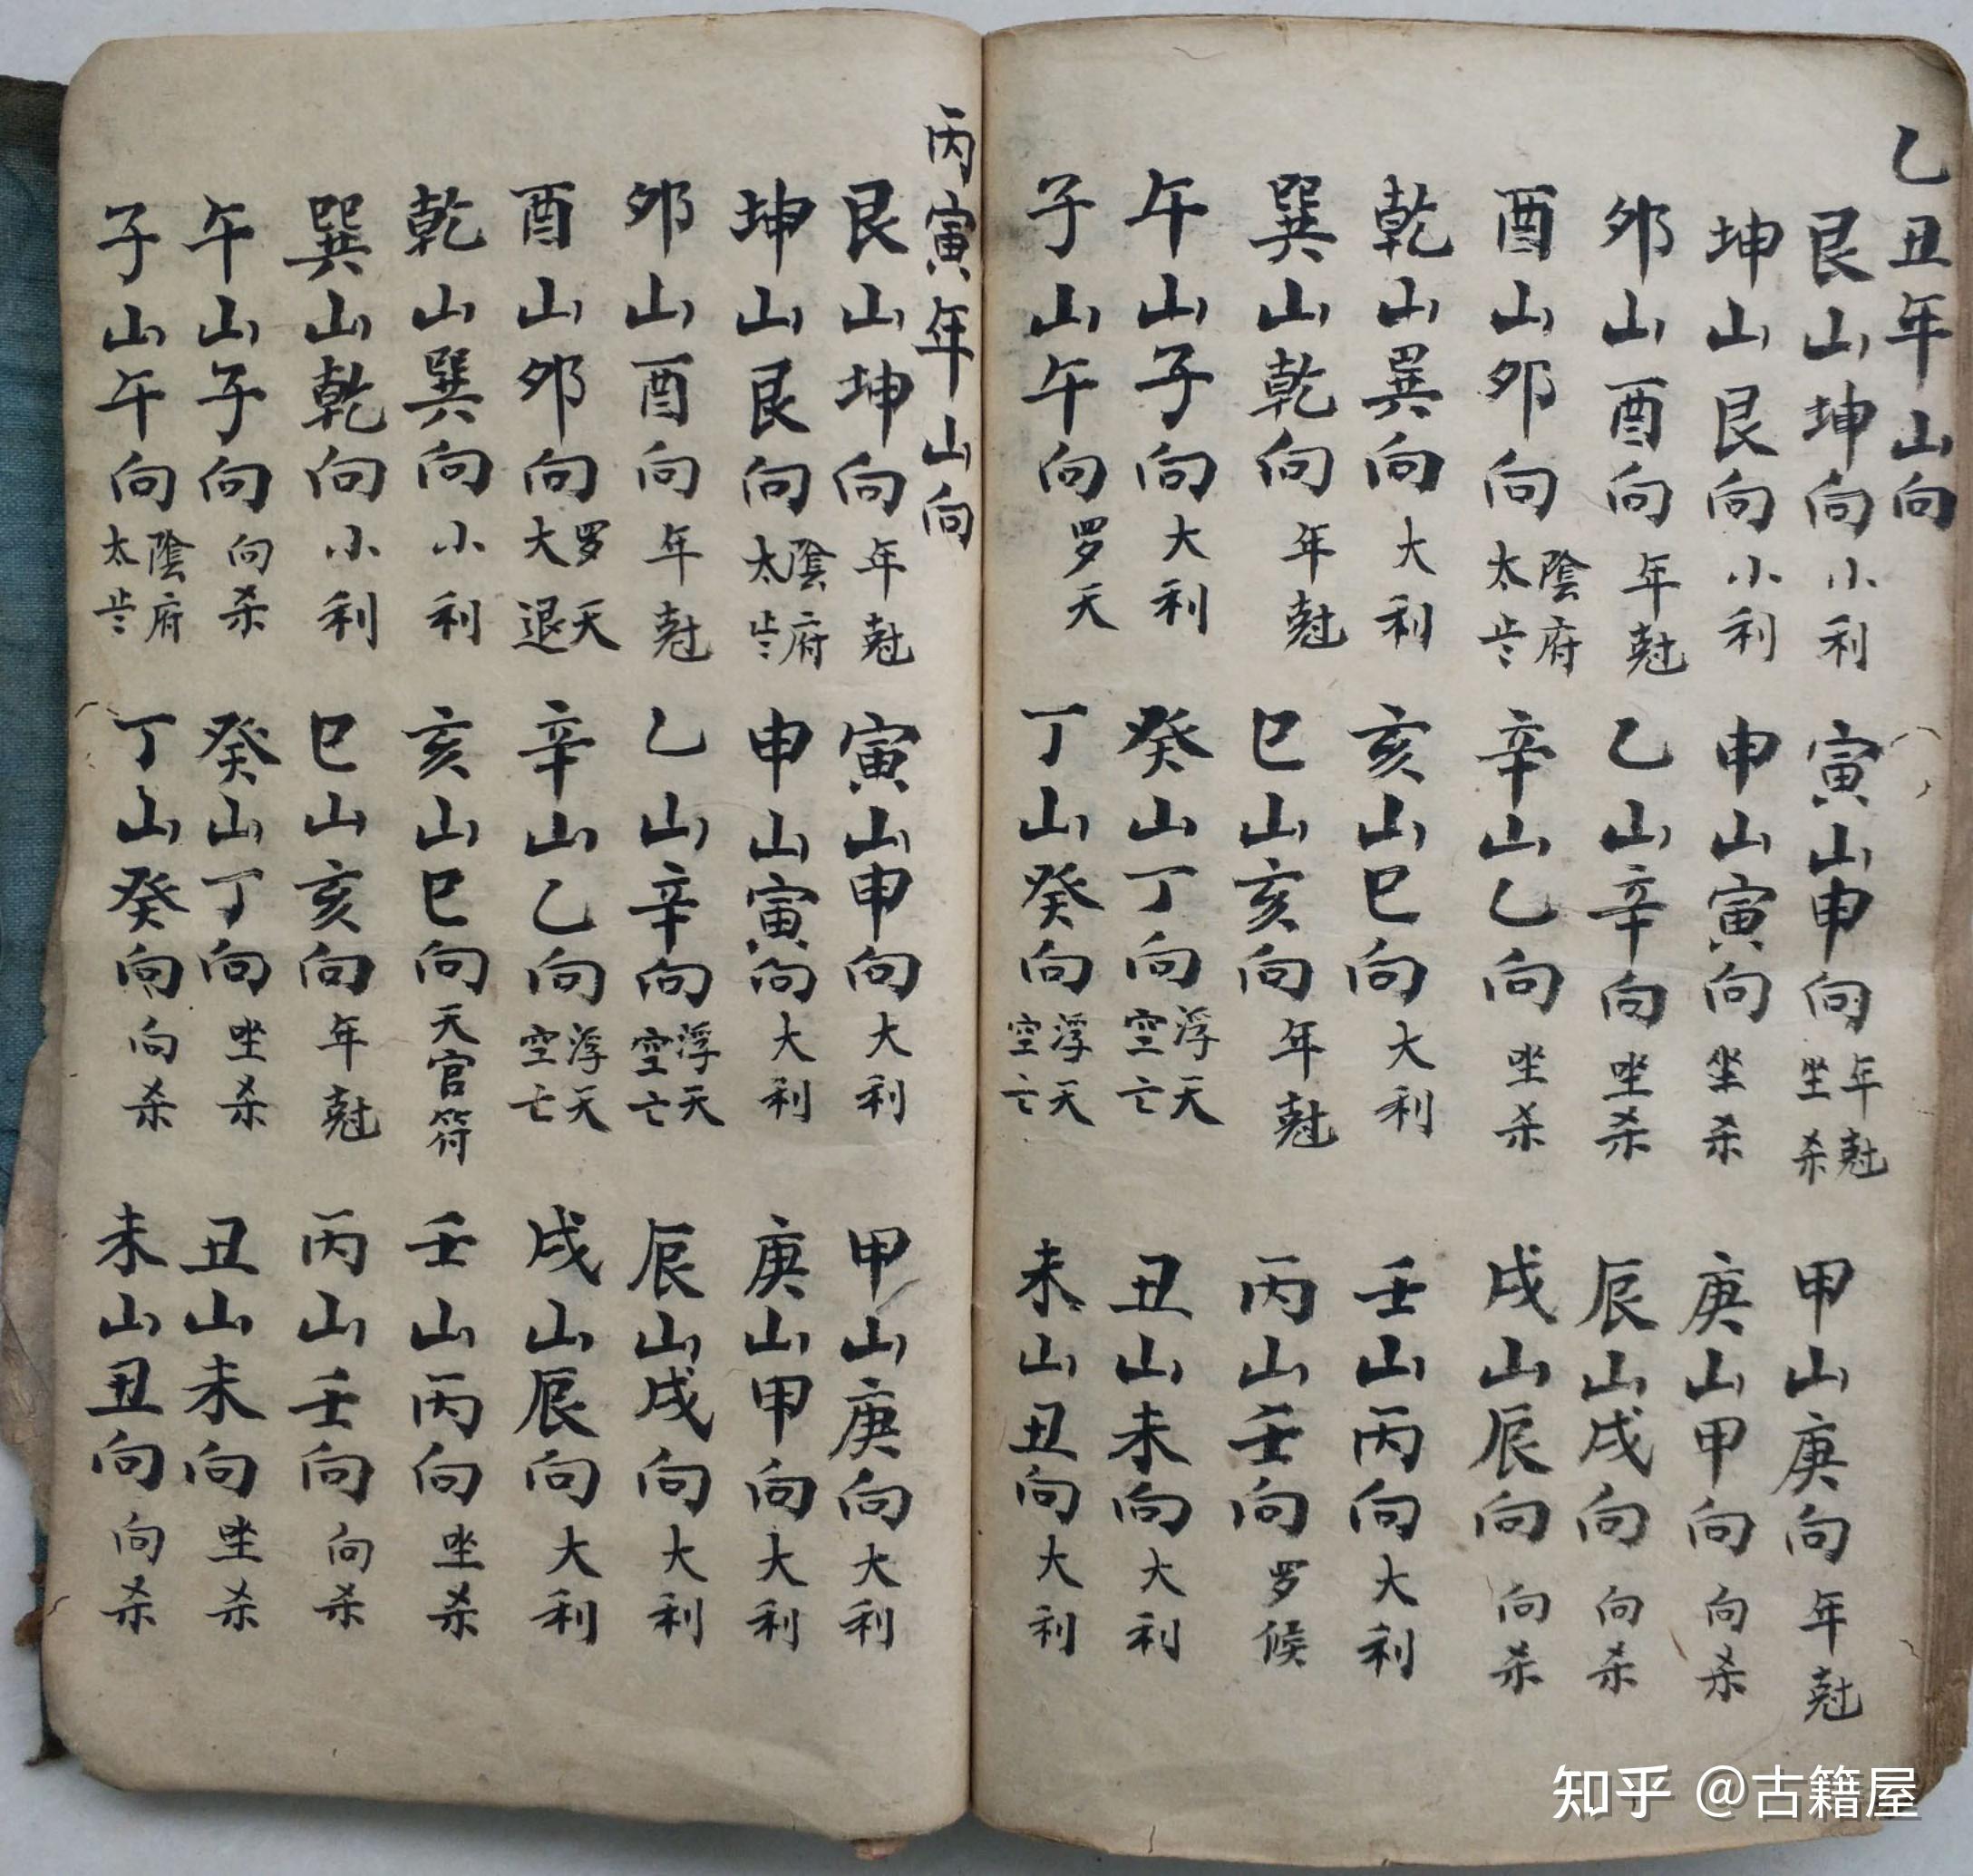 乙丑年山向
艮山坤向小利
寅山申向年尅坐杀
甲山庚向年尅
坤山艮向小利
申山寅向坐杀
庚山甲向向杀
夘山酉向年尅
乙山辛向坐杀
辰山戌向向杀
酉山夘向陰府太岁
辛山乙向坐杀
戌山辰向向杀
乾山巽向大利
亥山巳向大利
壬山丙向大利
巽山乾向年尅
巳山亥向年尅
丙山壬向罗候
午山子向大利
癸山丁向浮天空亡
丑山未向大利
子山午向罗天
丁山癸向浮天空亡
未山丑向大利
丙寅年山向
艮山坤向年尅
寅山申向大利
甲山庚向大利
坤山艮向陰府太岁
申山寅向大利
庚山甲向大利
夘山酉向年尅
乙山辛向浮天空亡
辰山戌向大利
酉山夘向罗天大退
辛山乙向浮天空亡
戌山辰向大利
乾山巽向小利
亥山巳向天官符
壬山丙向坐杀
巽山乾向小利
巳山亥向年尅
丙山壬向向杀
午山子向向杀
癸山丁向坐杀
丑山未向坐杀
子山午向陰府太岁
丁山癸向向杀
未山丑向向杀
知乎 @古籍屋